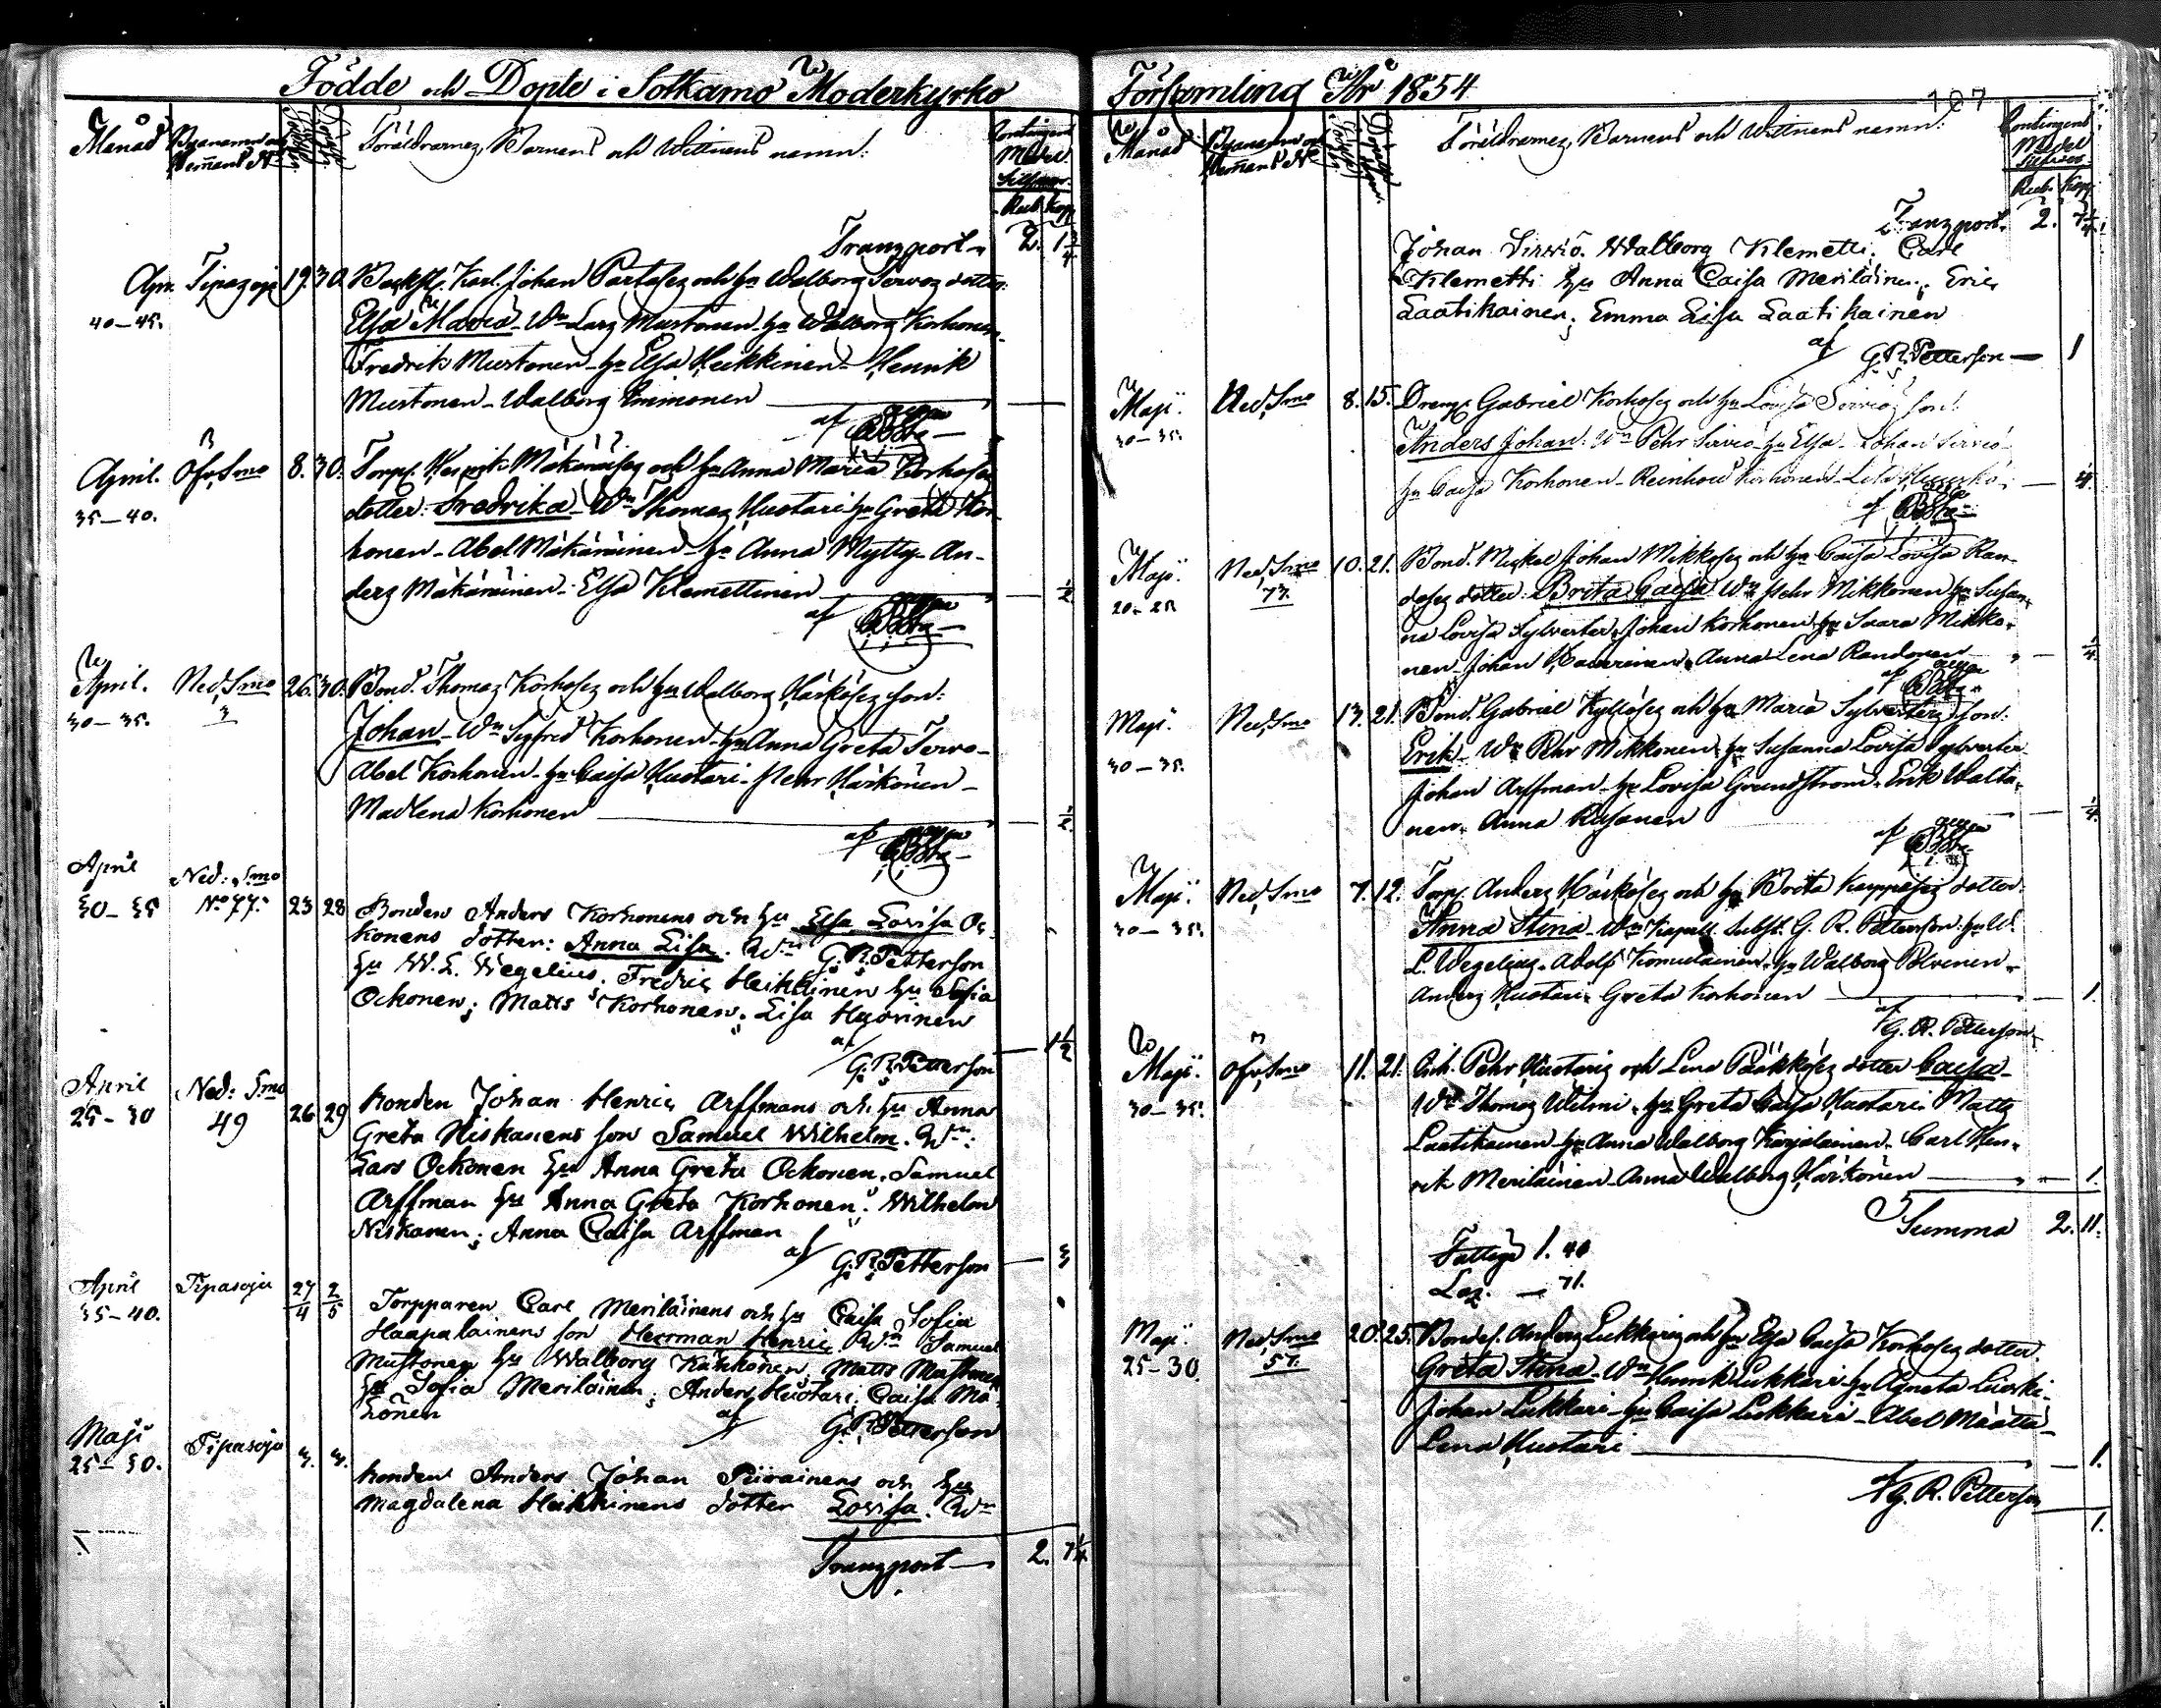 Födde och Döpte i Sotkamo Moderkyrko
Månad
Bynamn och
Hemans No
Födelse
Döpelse
Föräldrarnes, Barnens och Wittnens namn:
Contingent
Medel
Silfver
Rub. Kop
Transport 2. 1 3/4
Apr. Tipasoja 19. 30. Karl Johan Partases och hu Walborg Tervos dotter:
40–45. Elsa Maria. Wn Lars Mustonen hu Walborg Korhonen
Fredrik Mustonen hu Elsa Heikkinen Henrik
Mustonen Walborg Imminonen
af
April. Ofv. Smo 8. 30. Torp. Henrik Mäkäräises och hu Anna Maria Korhoses
35–40. dotter: Fredrika Wn Thomas Huotari hu Greta Kor-
honen Abel Mäkäräinen hu Anna Mytty An-
ders Mäkäräinen Elsa Klemettinen 1/2
af
April. Ned. Smo 26. 30. Bond. Thomas Korhoses och hu Walborg Härköses son:
30–35. 3 Johan Wn Sigfrid Korhonen hu Anna Greta Tervo
Abel Korhonen hu Caisa Huotari Pehr Härkönen
Madlena Korhonen 1/2
af
April Ned: Smo
30–35 No 77. 23 28 Bonden Anders Korhonens och hu Elsa Lovisa Oc-
konens dotter: Anna Lisa. Wn G. R. Petterson
hu W. L. Wegelius. Fredric Heikkinen hu Sofia
Ockonen; Matts Korhonen; Lisa Huovinen
af 1 1/2
G. R. Petterson
April Ned: Smo
25–30 49 26 29 Bonden Johan Henric Arffmans och hu Anna
Greta Niskanens son Samuel Wilhelm. Wn:
Lars Ockonen hu Anna Greta Ockonen. Samuel
Arffman hu Anna Greta Korhonen. Wilhelm
Niskanen; Anna Caisa Arffman
af G. R. Petterson 3
April Tipasoja 27/4 2/5 Torpparen Carl Meriläinens och hu Caisa Sofia
35–40. Haapalainens son Herrman Henric Wn Samuel
Mustonen hu Walborg Härkönen, Matts Mustonen
hu Sofia Meriläinen; Anders Huotari; Caisa
af G. R. Petterson
Maji Tipasoja 3. 3.
25–30. Bonden Anders Johan Piirainens och hu
Magdalena Heikkinens dotter Lovisa. Wn
Transport 2. 7 1/4
Församling År 1854
107
Månad
Bynamn och
Hemans No
Föräldrarnes, Barnens och Wittnens namn:
Contingent
Medel
Silfver
Rub. Kop
Transport 2. 7 1/4
Johan Sirviö. Walborg Klemetti. Carl
Klemetti hu Anna Caisa Meriläinen. Eric
Laatikainen; Emma Lisa Laatikainen
af G. R. Petterson 1
Maji. Ned. Smo 8. 15. Dreng. Gabriel Korhoses och hu Lovisa Sirviös son:
30–35. Anders Johan. Wn Pehr Sirviö hu Elsa Johan Sirviö
hu Caisa Korhonen Reinhold Korhonen 4.
af
Maji. Ned. Smo 10. 21. Bond. Mickel Johan Mikkoses och hu Caisa Lovisa Ran-
77. doses dotter: Brita Caisa Wn Pehr Mikkonen hu Susan-
na Lovisa Sylvester. Johan Korhonen hu Saara Mikko-
nen. Johan Anna Lena Randonen 1/4
af
Maji. Ned. Smo 13. 21. Bond. Gabriel Kyllöses och hu Maria Sylvesters son:
30–35. Erik Wn Pehr Mikkonen hu Susanna Lovisa Sylvester
Johan Arffman hu Lovisa Grundström. Erik Walta-
nen. Anna Räsänen 1/4
af
Maji. Ned. Smo 7. 12. Torp. Anders Härköses och hu Brita Karppises dotter:
30–35. Anna Stina Wn Kapell. Subst. G. R. Petterson hu W.
L. Wegelius. Adolf Komulainen hu Walborg Polvinen
Anders Huotari Greta Korhonen 1.
af G. R. Petterson
Maji. Ofv. Smo 11. 21. Pehr Huotaris och Lena Pääkköses dotter Caisa
30–35. Wn Thomas Wilmi hu Greta Caisa Huotari. Matts
Laatikainen hu Anna Walborg Karjalainen Carl Hen-
rik Meriläinen Anna Walborg Härkönen 1.
Summa 2. 11.
Fattige 1. 40
Laz. — 71.
Maji. Ned. Smo 20. 25. Bondes. Anders Lukkaris och hu Elsa Caisa Korhoses dotter
25–30. 57. Greta Stina Wn Henrik Lukkari hu Agneta
Johan Lukkari hu Caisa Lukkari Abel Määttä
Lena Huotari 1.
af G. R. Petterson
1.